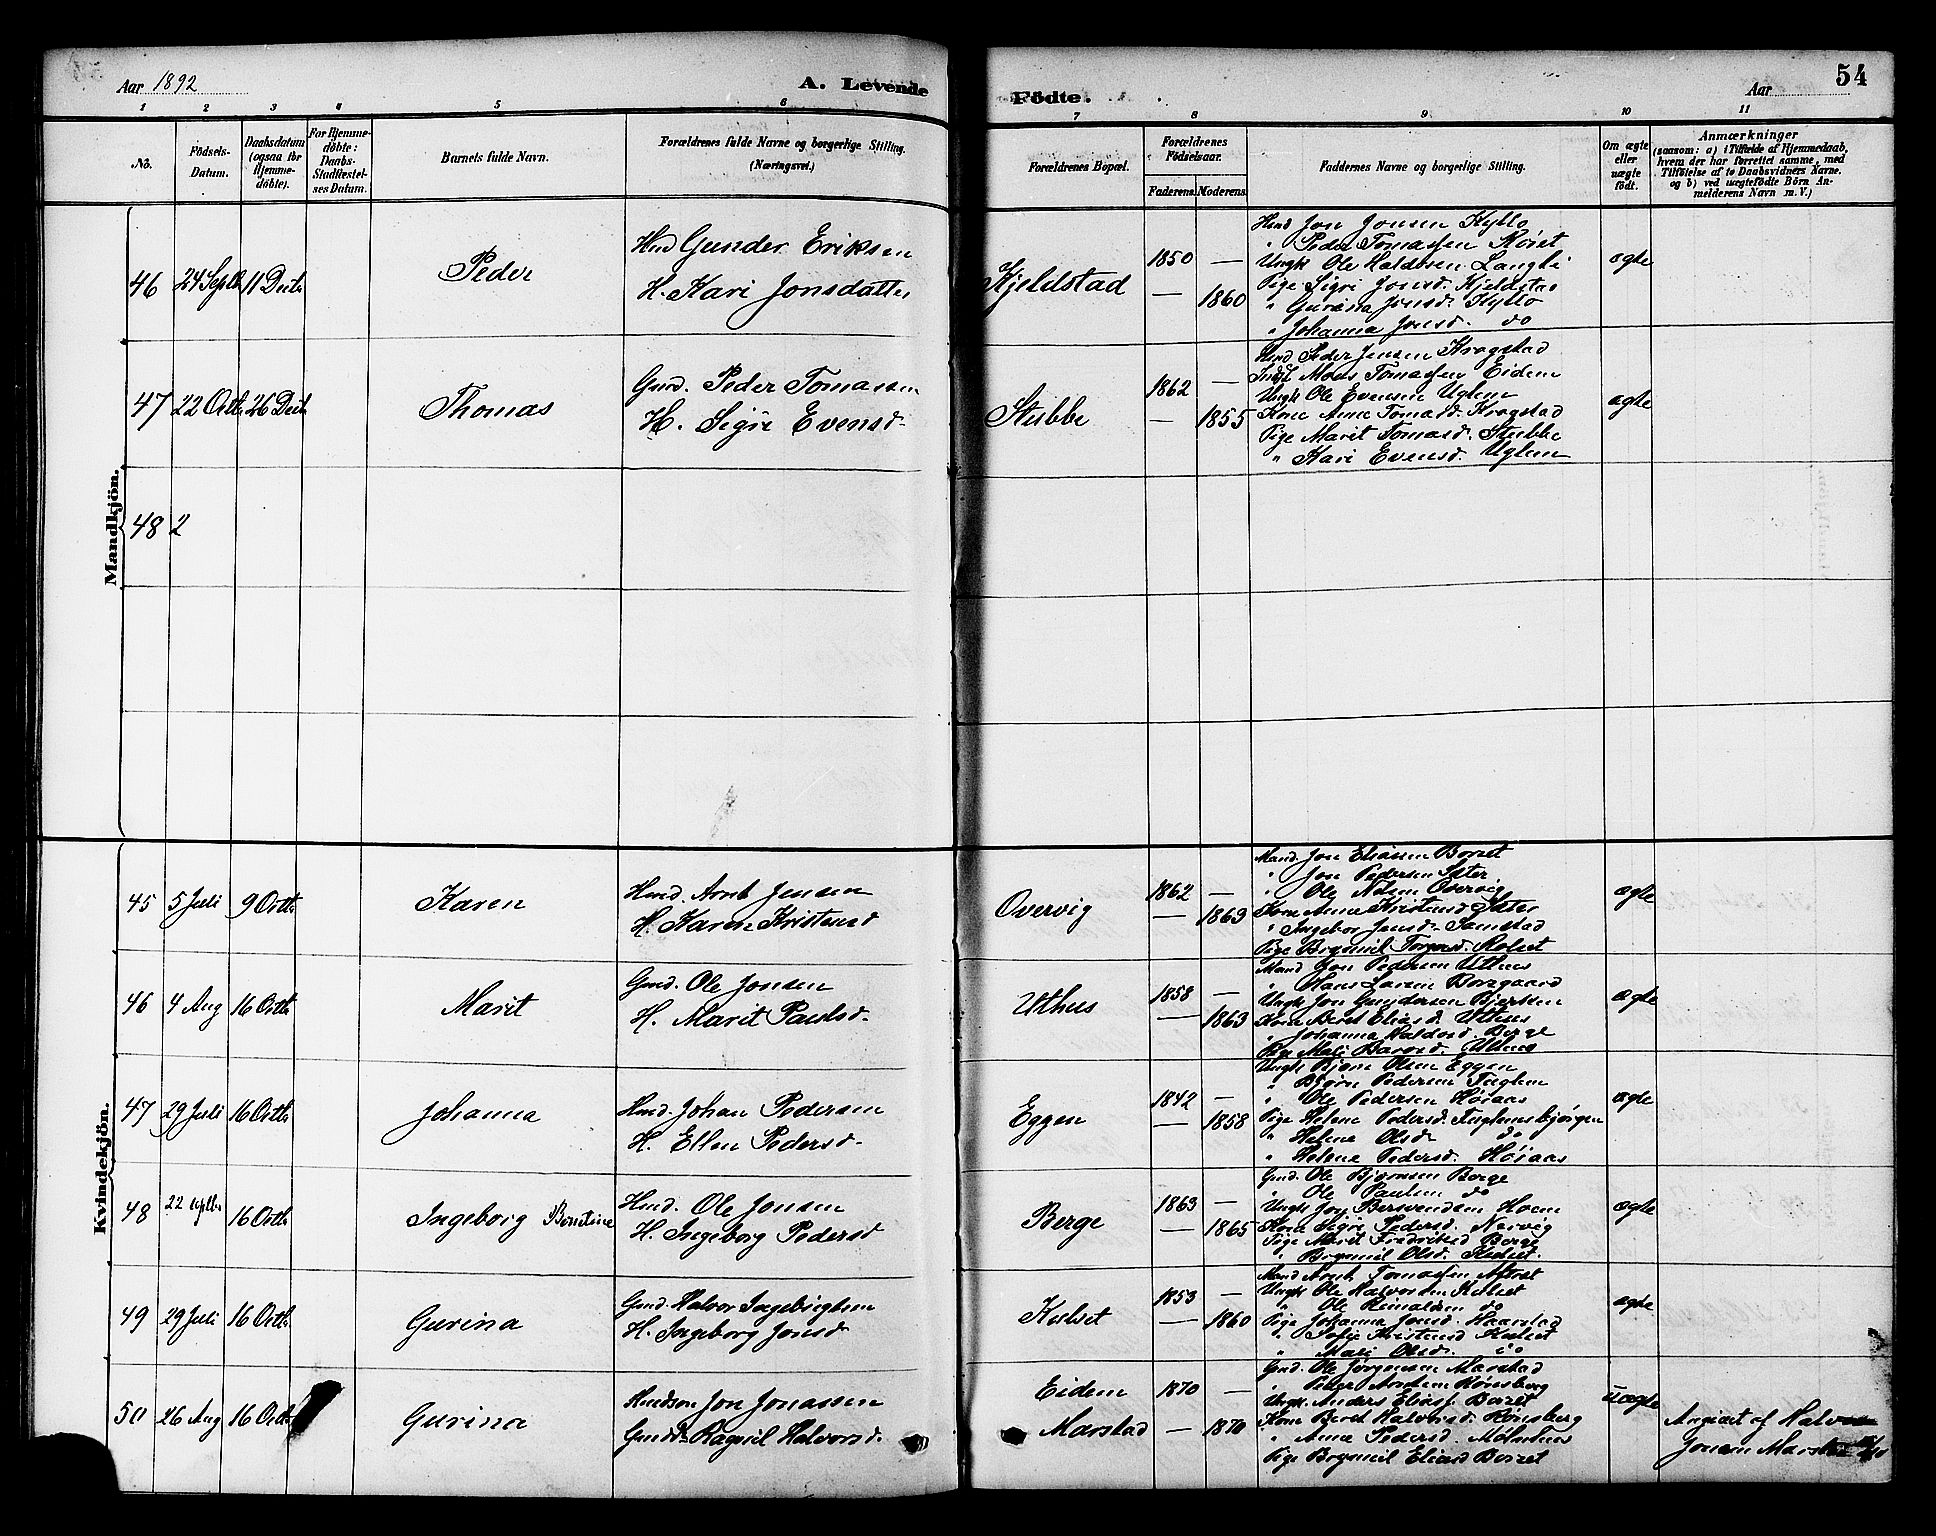 Aar 1892
A. Levende Födte.
Aar
54
1 2 3 4 5 6 7 8 9 10 11
No.
Födsels-Datum.
Daabsdatum (ogsaa for Hjemmedöbte).
For Hjemmedöbte: Daabs-Stadfæstelses Datum.
Barnets fulde Navn.
Forældrenes fulde Navne og borgerlige Stilling. (Næringsvei.)
Forældrenes Bopæl.
Forældrenes Födselsaar.
Faderens. Moderens.
Faddernes Navne og borgerlige Stilling.
Om ægte eller uægte födt.
Anmærkninger
(saasom: a) i Tilfælde af Hjemmedaab, hvem der har forrettet samme, med Tilföielse af to Daabsvidners Navne. og b) ved uægtefödte Börn Anmelderens Navn m. V.)
Mandkjön.
46 24 Septb 11 Decb Peder
Hmd Gunder Eriksen
H. Kari Jonsdatter
Kjeldstad
1850 —
— 1860
Hmd Jon Jonsen Kyllo
" Peder Tomassen Roset
Ungk Ole Haldosen Langli
Pige Sigri Jonsd. Kjeldstad
" Gurina Jonsd. Kyllo
" Johanna Jonsd. do
ægte
47 22 Octb 26 Decb Thomas
Gmd. Peder Tomassen
H. Sigri Evensd.
Stubbe
1862 —
— 1855
Hmd Peder Jensen Kragstad
Mons Tomassen Eidem
Ungk Ole Evensen Uglem
Kone Anne Tomasd. Kragstad
Pige Marit Tomasd. Stubbe
" Kari Evensd. Uglem
ægte
48 2
Kvindekjön.
45 5 Juli 9 Octb Karen
Hmd. Arnt Jensen
H. Karen Kristensd
Overvig
1862 —
— 1869
Mand. Jon Eliassen Borset
" Jon Pedersen Sæter
" Ole Nilsen Overvig
Kone Anne Kristensd Sæter
" Ingebor Jensd. Samstad
Pige Brynnil Kolset
ægte
46 4 Aug 16 Octb Marit
Gmd. Ole Jonsen
H. Marit Paulsd.
Uthus
1858 —
— 1863
Mand Jon Pedersen Uthus
" Hans Larsen Borsgaard
Ungk Jon Gundersen Bjerken
Kone Beret Eliasd. Uthus
" Johanna Haldosd. Berge
Pige Mali Uthus
ægte
47 29 Juli 16 Octb Johanna
Hmd. Johan Pedersen
H. Ellen Pedersd.
Eggen
1842 —
— 1858
Ungk Bjørn Olsen Eggen
" Bjørn Pedersen Fuglem
" Ole Pedersen Høiaas
Pige Helene Pedersd. Fuglemsbjørgen
" Helene Olsd. do
" Helene Pedersd. Høiaas
ægte
48 22 Septbr 16 Octb Ingeborg Berntine
Hmd. Ole Jonsen
H. Ingeborg Pedersd
Berge
1863 —
— 1865
Gmd. Ole Bjørnsen Berge
" Ole Paulsen do
Ungk Jon Hoem
Kone Sigri Pedersd. Nervig
Pige Marit Fredriksd Berge
" Brynnil Olsd. Kulset.
ægte
49 29 Juli 16 Octb Gurina
Gmd. Halvor Ingebrigtsen
H. Ingeborg Jonsd
Kulset
1853 —
— 1860
Mand Arnt Tomassen Aftret
Ungk Ole Halvorsen Kulset
" Ole Reinaldsen do
Pige Johanna Jonsd. Haarstad
" Sofie Kristensd Kulset
" Mali Olsd. do
ægte
50 26 Aug 16 Octb Gurina
Hmdsøn Jon Jonassen
Gmdd. Ragnil Halvorsd.
Eidem
Marstad
1870 —
— 1870
Gmd. Ole Jørgensen Marstad
" Peder Arntsen Rønsberg
Ungk. Anders Eliass. Borset
Kone Beret Halvorsd. Rønsberg
" Anne Pedersd. Mølnhus
Pige Brynnil Eliasd Borset
uægte
Angivet af Halvor
Jonsen Marstad